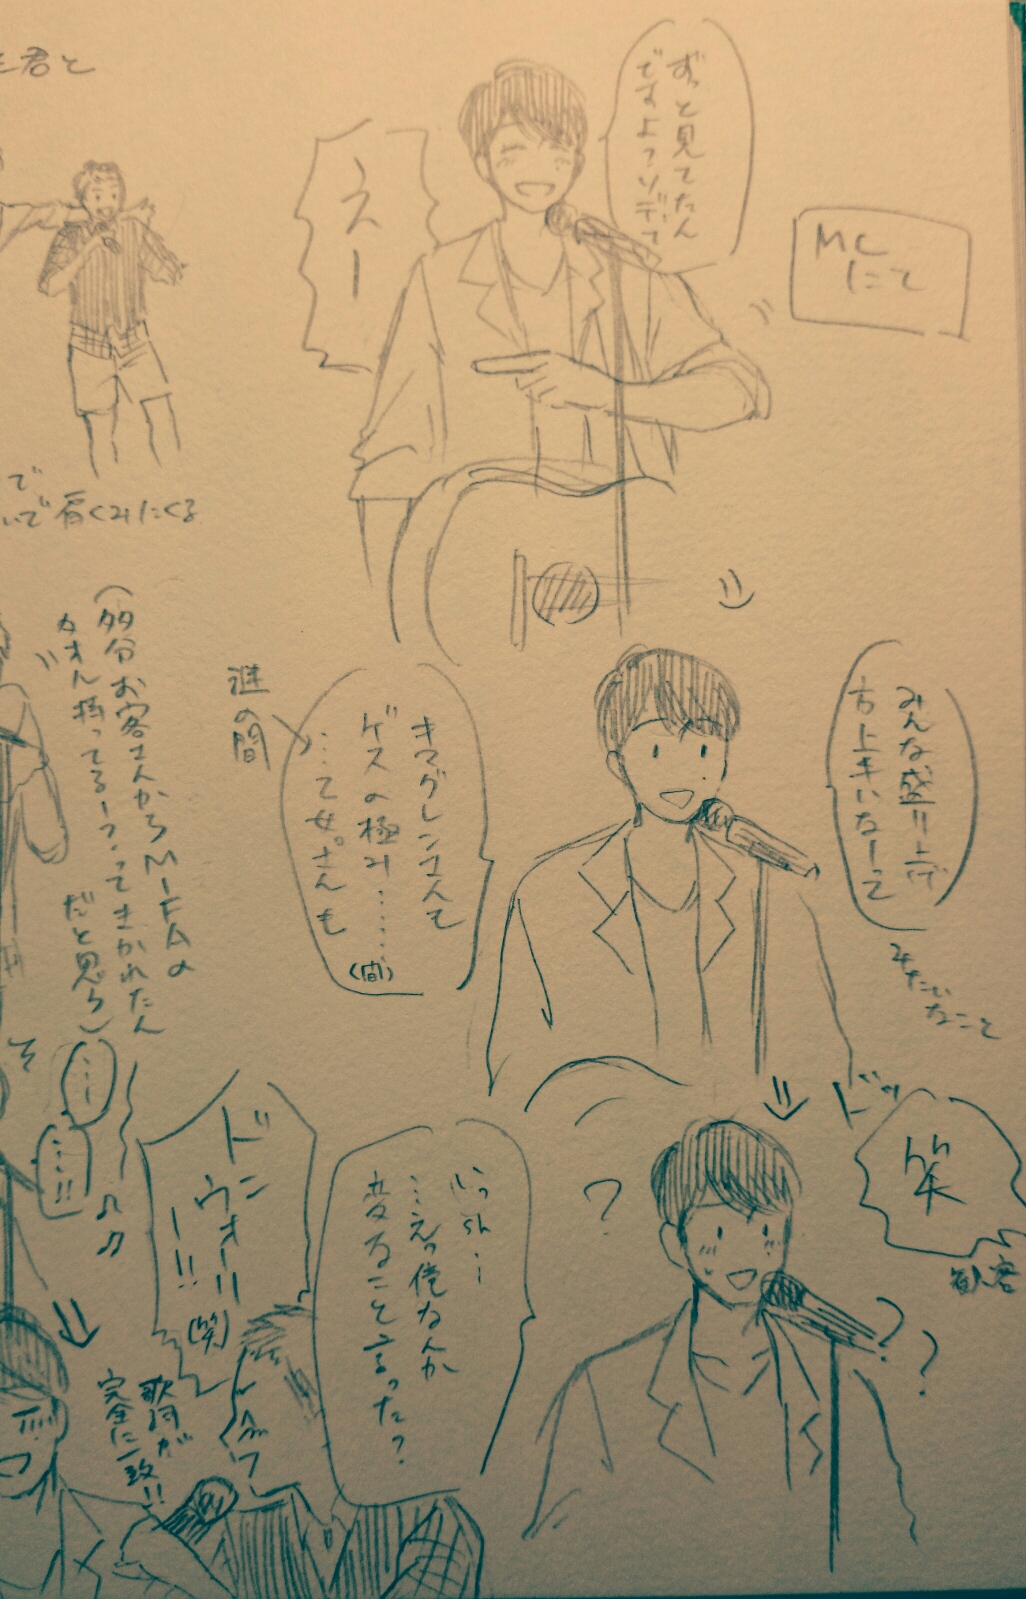 君と
MC
にて
ずっと見てたん
ですよ？ソデで
えー
で
いで肩くみにくる
みんな盛り上げ
方上手いなーって
みたいなこと
キマグレンさんて
ゲスの極み……
(間)
…て女。さんも
謎の間
(多分お客さんからMIFAの
タオル持ってるー？ってきかれたん
だと思う)
そ
…
…!!
ドッ
笑
観客
?
??
いっsh…
…えっ俺なんか
変なこと言った?
ドン
ウォーリー!!
(笑)
歌詞が
完全に一致!!